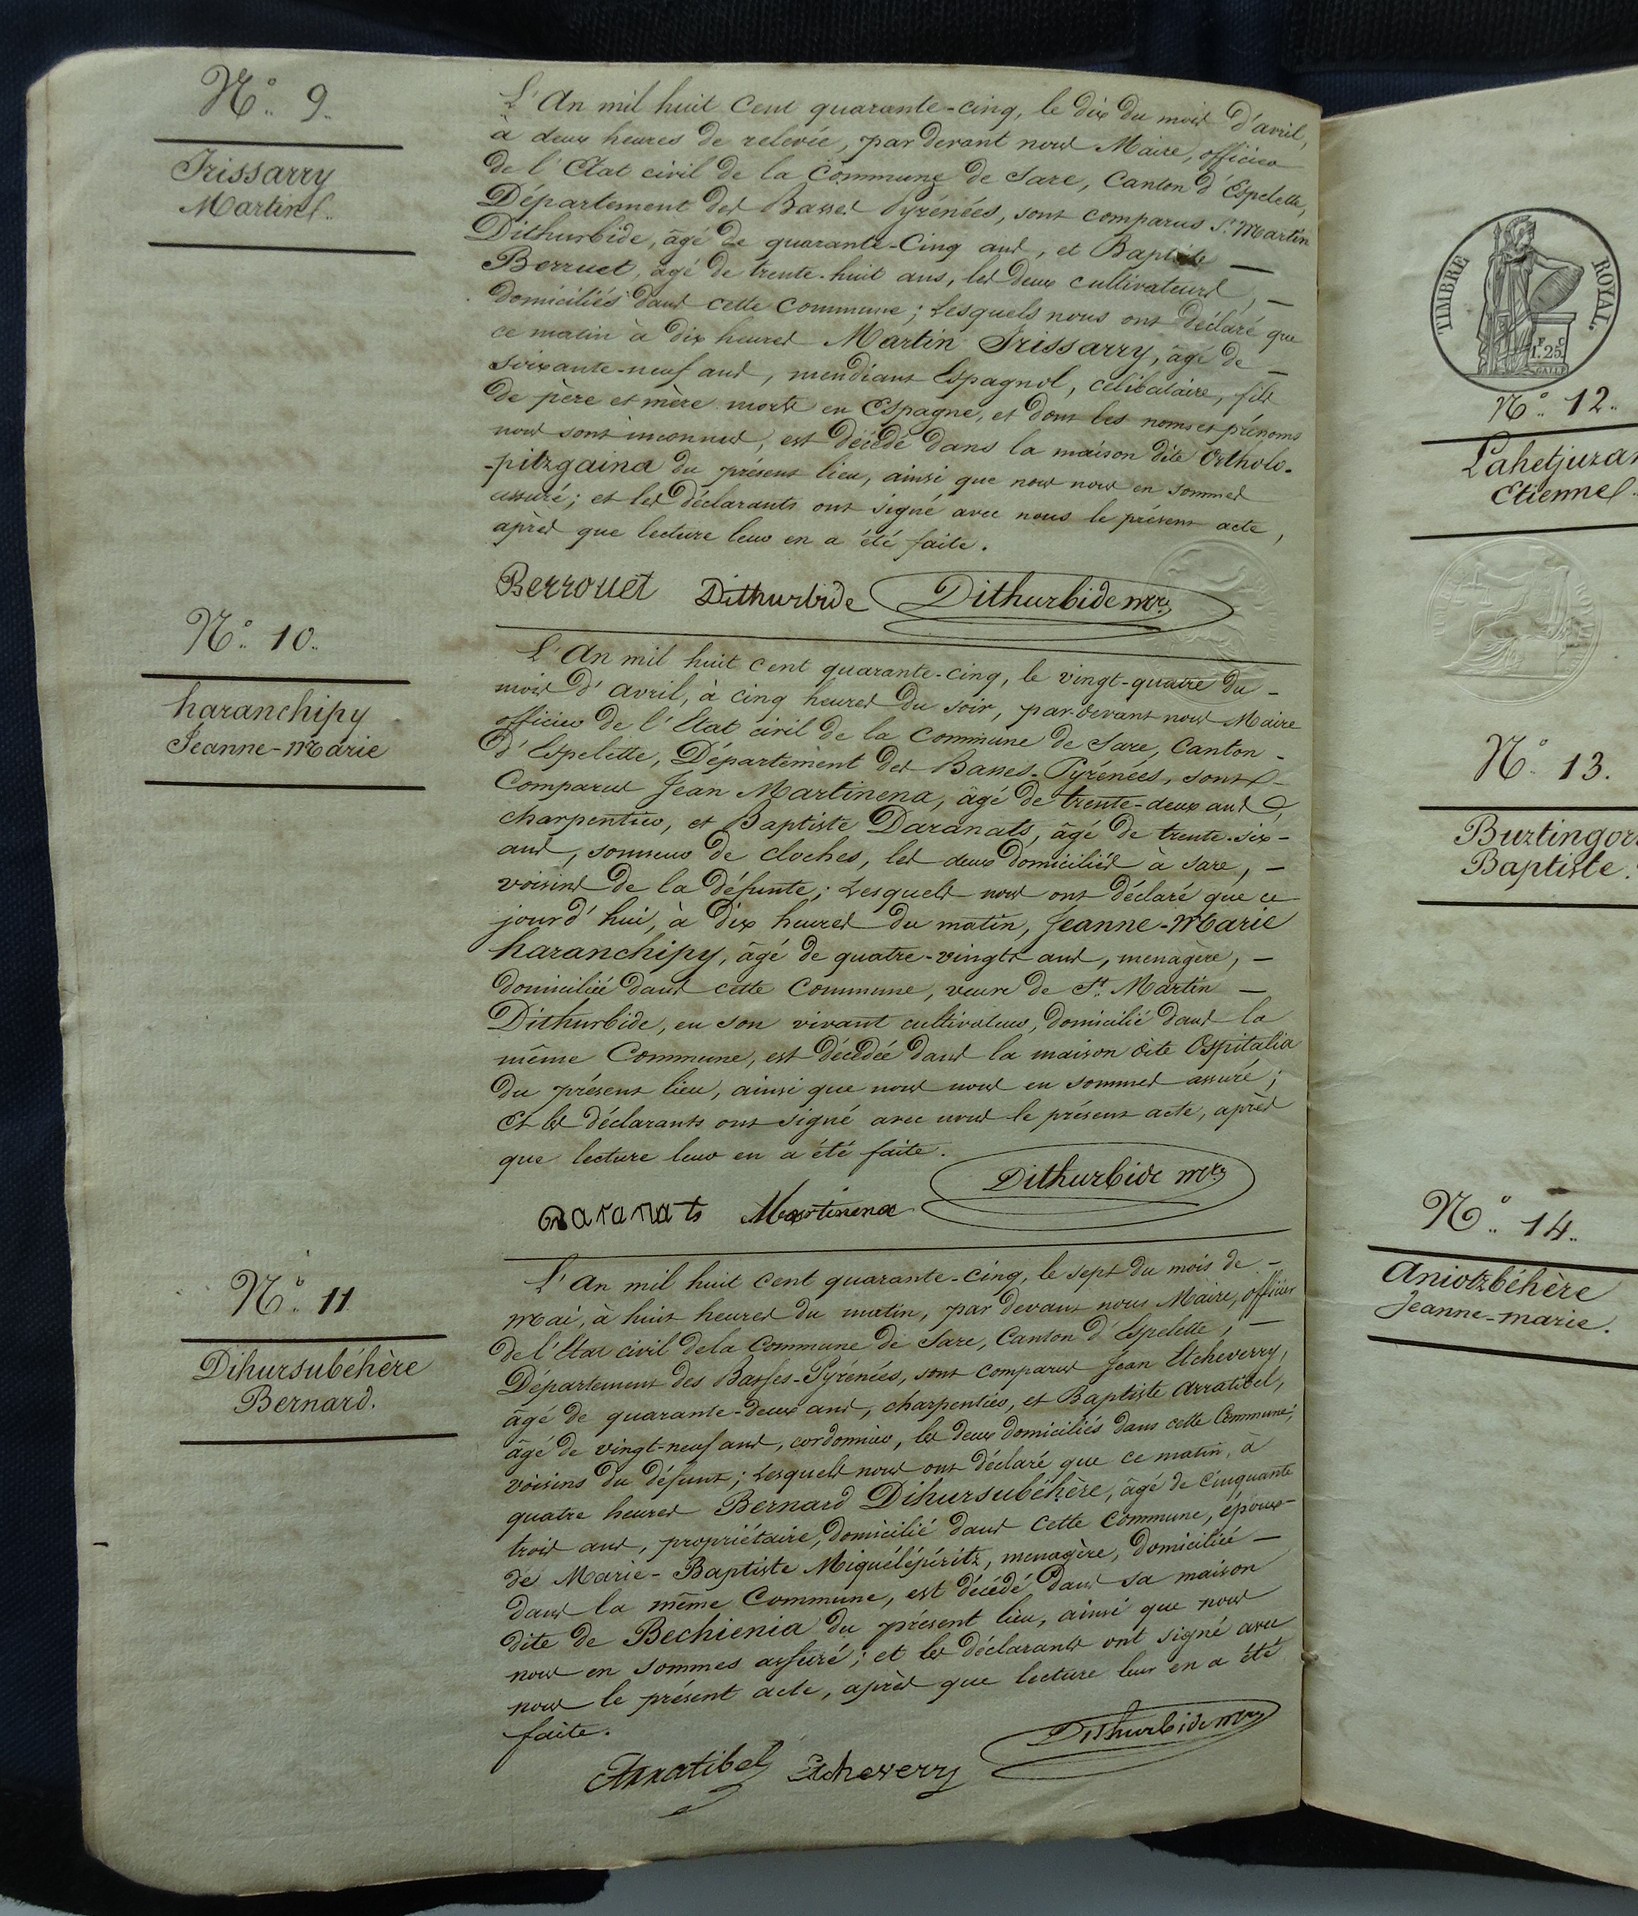 N.° 9.
Irissarry
Martin.
L'An mil huit cent quarante-cinq, le dix du mois d'avril,
à deux heures de relevée, par devant nous Maire, officier
de l'Etat civil de la Commune de Sare, Canton d'Espelette,
Département des Basses Pyrénées, sont comparus St. Martin
Dithurbide, âgé de quarante-Cinq ans, et Baptiste —
Berruet, âgé de trente-huit ans, les deux cultivateurs, —
domiciliés dans cette Commune; Lesquels nous ont déclaré que
ce matin à dix heures Martin Irissarry, âgé de —
soixante-neuf ans, mendiant Espagnol, célibataire, fils
de père et mère morts en Espagne, et dont les noms et prénoms
nous sont inconnus, est décédé dans la maison dite Ortholo-
-pitzgaina du présent lieu, ainsi que nous nous en sommes
assuré; et les déclarants ont signé avec nous le présent acte,
après que lecture leur en a été faite.
Berrouet Dithurbide Dithurbide mre
N.° 10.
haranchipy
Jeanne-Marie
L'An mil huit cent quarante-cinq, le vingt-quatre du -
mois d'avril, à cinq heures du soir, par-devant nous Maire
officier de l'Etat civil de la Commune de Sare, Canton -
d'Espelette, Département des Basses-Pyrénées, sont
Comparus Jean Martinena, âgé de trente-deux ans,
charpentier, et Baptiste Daranats, âgé de trente-six-
ans, sonneur de cloches, les deux domiciliés à Sare, —
voisins de la défunte; Lesquels nous ont déclaré que ce
jourd'hui, à dix heures du matin, Jeanne-Marie
haranchipy, âgé de quatre-vingts ans, menagère, —
domiciliée dans cette Commune, veuve de St. Martin —
Dithurbide, en son vivant cultivateur, domicilié dans la
même Commune, est décédée dans la maison dite Ospitalia
du présent lieu, ainsi que nous nous en sommes assuré;
Et les déclarants ont signé avec nous le présent acte, après
que lecture leur en a été faite.
Daranats Martinena Dithurbide mre
N.° 11
Dihursubéhère
Bernard.
L'An mil huit cent quarante-cinq, le sept du mois de -
mai, à huit heures du matin, par devant nous Maire, officier
de l'Etat civil de la Commune de Sare, Canton d'Espelette, —
Département des Basses-Pyrénées, sont comparus Jean Etcheverry,
âgé de quarante-deux ans, charpentier, et Baptiste Arratibel,
âgé de vingt-neuf ans, cordonnier, les deux domiciliés dans cette Commune,
voisins du défunt; Lesquels nous ont déclaré que ce matin, à
quatre heures Bernard Dihursubéhère, âgé de cinquante
trois ans, propriétaire, domicilié dans cette Commune, époux-
de Marie-Baptiste Miquélépéritz, menagère, domiciliée —
dans la même Commune, est décédé dans sa maison
dite de Bechienia du présent lieu, ainsi que nous
nous en sommes assuré; et les déclarants ont signé avec
nous le présent acte, après que lecture leur en a été
faite.
Arratibel Etcheverry Dithurbide mre
TIMBRE ROYAL
F. C.
1. 25
N.° 12.
Lahetjuzan
Etienne.
N.° 13.
Burtingor
Baptiste.
N.° 14.
Aniotzbéhère
Jeanne-marie.